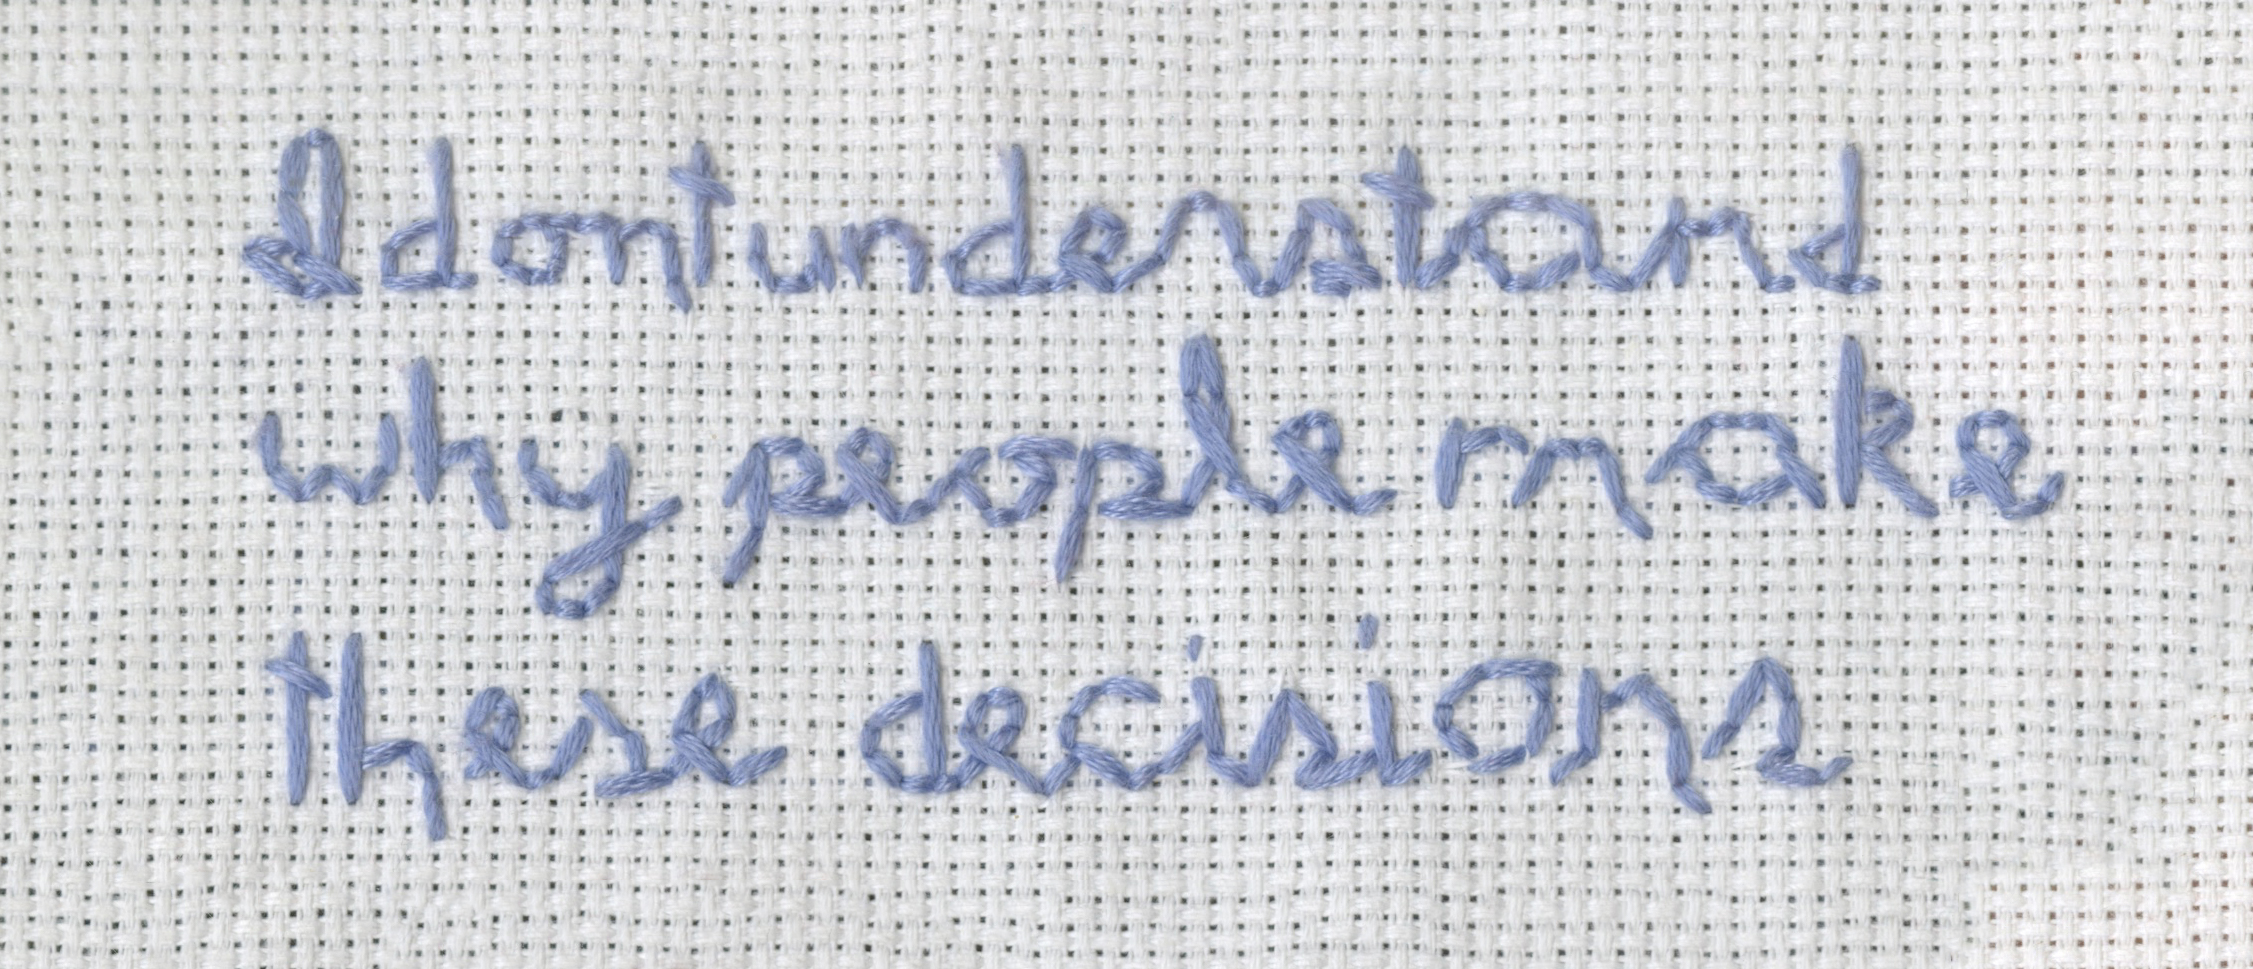 I dont understand
why people make
these decisions